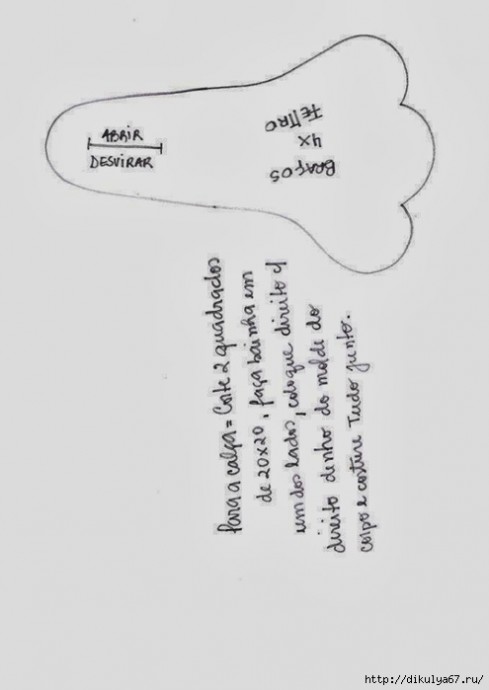 ABRIR
DESVIRAR
BRAÇOS
4X
FELTRO
Para a calça = Corte 2 quadrados
de 20x20, faça bainha em
um dos lados, coloque direito c/
direito dentro do molde do
corpo e costure Tudo junto.
http://dikulya67.ru/